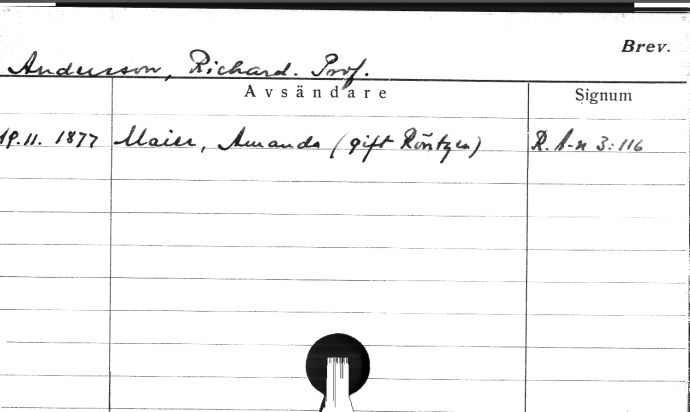 Brev.
Andersson, Richard. Prof.
Avsändare Signum
19.11. 1877 Maier, Amanda (gift Röntgen) R. A-n 3:116